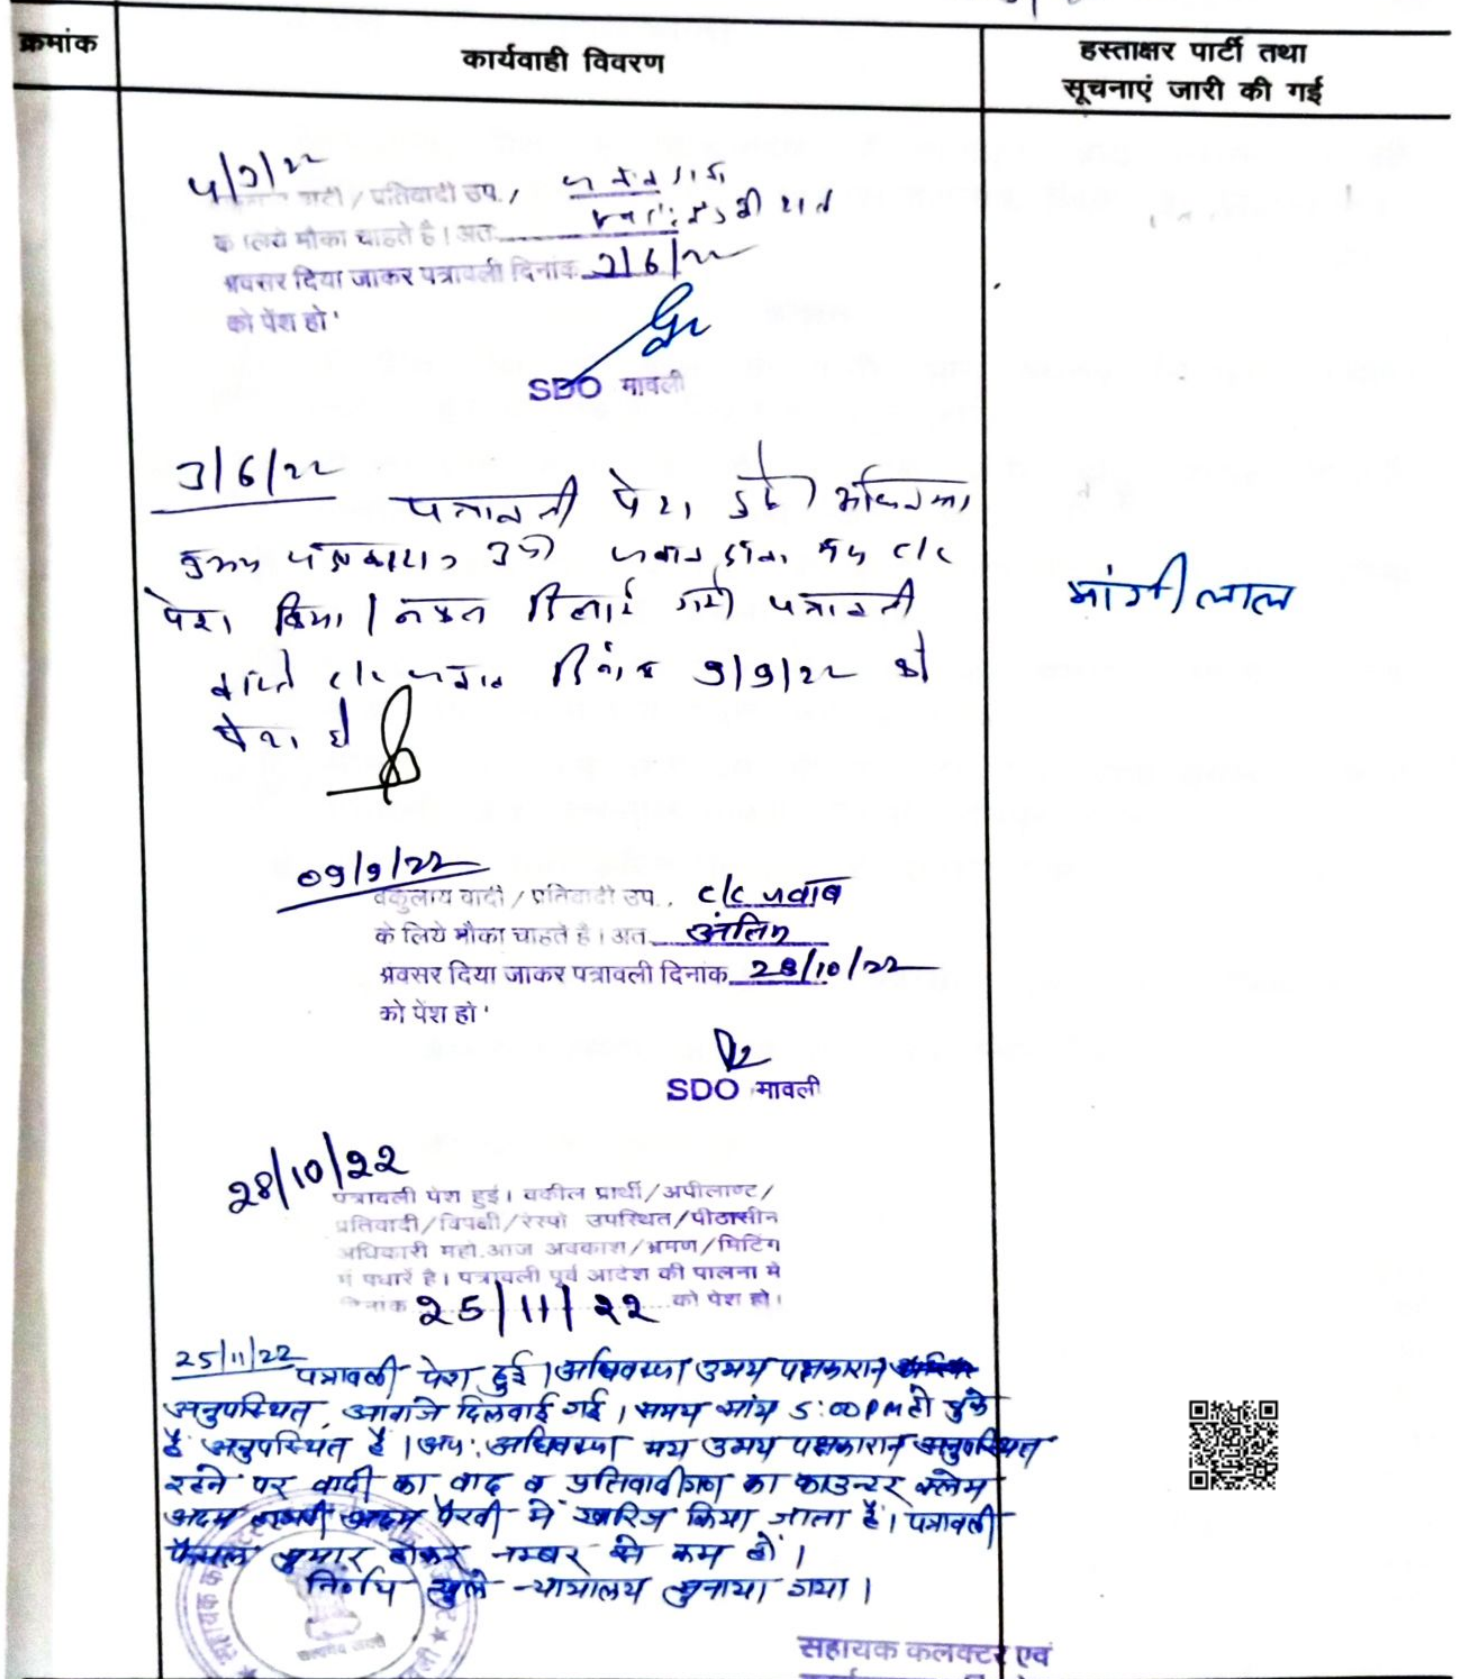 क्रमांक
कार्यवाही विवरण
हस्ताक्षर पार्टी तथा
सूचनाएं जारी की गई
वादी / प्रतिवादी उप. /
के लिये मौका चाहते है। अत
अवसर दिया जाकर पत्रावली दिनांक 3/6/22
को पेंश हो'
SDO मावली
3/6/22
पत्रावली पेश हुई।
c/c
पेश किया। नकल दिलाई गयी पत्रावली
c/c जवाब दिनांक 9/9/22 को
पेश हो
मांगीलाल
09/9/22
वकुलाय वादी / प्रतिवादी उप., c/c जवाब
के लिये मौका चाहते है। अत अंतिम
अवसर दिया जाकर पत्रावली दिनांक 28/10/22
को पेंश हो'
SDO मावली
28/10/22
पत्रावली पेश हुई। वकील प्रार्थी/अपीलाण्ट/
प्रतिवादी/विपक्षी/रेस्पो उपस्थित/पीठासीन
अधिकारी महो.आज अवकाश/भ्रमण/मिटिंग
में पधारें है। पत्रावली पूर्व आदेश की पालना में
दिनांक 25/11/22 को पेश हो।
25/11/22 पत्रावली पेश हुई। अधिवक्ता उभय पक्षकारान
अनुपस्थित, आवाजे दिलवाई गई। समय सांय 5:00 PM हो चुके
है अनुपस्थित है। अत: अधिवक्ता मय उभय पक्षकारान अनुपस्थित
रहने पर वादी का वाद व प्रतिवादीगण का काउन्टर क्लेम
अदम हाजरी अदम पैरवी में खारिज किया जाता है। पत्रावली
फैसल शुमार होकर नम्बर से कम हो।
निर्णय खुले न्यायालय सुनाया गया।
सहायक कलक्टर एवं